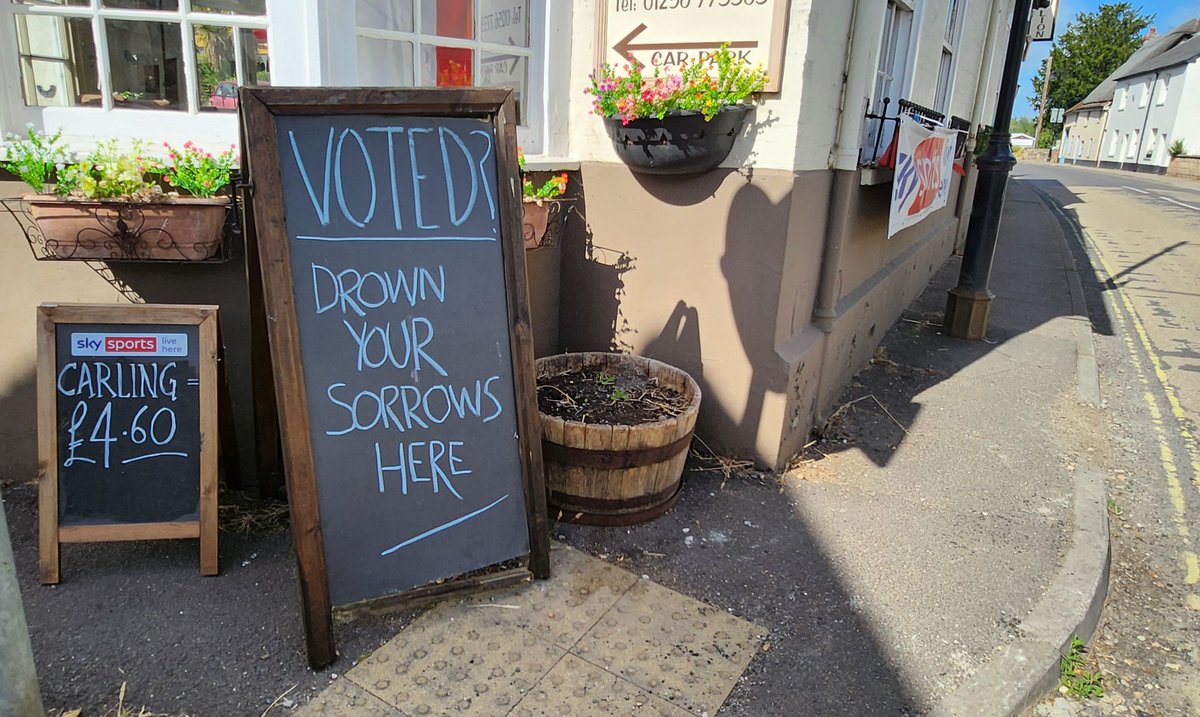 Tel: 01256 773363
CAR PARK
VOTED?
DROWN
YOUR
SORROWS
HERE
sky sports live here
CARLING =
£4.60
sky sports